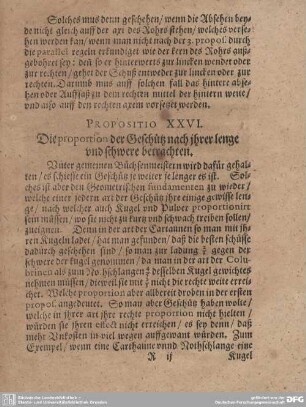 Solches mus denn geschehen/ wenn die Absehen bey-
de nicht gleich auff der axi des Rohrs stehen/ welches verse-
hen werden kan/ wenn man nicht nach der 3. propos. durch
die parallel regeln erkundiget wie der kern des Rohrs auß-
gebohret sey: denn so er hinderwerts zur lincken wendet oder
zur rechten/ gehet der Schuß entweder zur lincken oder zur
rechten. Darumb mus auff solchen fall das hintere abse-
hen oder Auffsatz zu dem rechten mittel der hintern
und also auff den rechten axem versetzt werden.
PROPOSITIO XXVI.
Die proportion der Geschütz nach jhrer lenge
vnd schwere betrachten.
Vnter gemeinen Büchsenmeistern wird dafür gehal-
ten/ es schiesse ein Geschütz je weiter je lenger es ist. Sol-
ches ist aber den Geometrischen fundamenten zu wieder/
welche einer jedern art der Geschütz jhre einige gewisse len-
ge/ nach welcher auch Kugel vnd Pulver proportioniert
sein müssen/ wo sie nicht zu kurtz vnd schwach treiben sollen/
zueignen. Denn in der art der Cartaunen so man mit jh-
ren Kugeln ladet/ hat man gefunden/ daß die besten schüsse
dadurch geschehen sind/ so man zur ladung gegen der
schwere der kugel genommen/ da man in der art der Colu-
brinen als zum Nohtschlangen desselben Kugel gewichtes
nehmen müssen/ dieweil sie mit die rechte weite nicht errei-
chet. Welche proportion aber albereit droben in der ersten
propos. angedeutet. So man aber Geschütz haben wolte/
welche in jhrer art jhre rechte proportion nicht hielten/
würden sie jhren effect nicht erreichen/ es sey denn/ daß
mehr Vnkosten in viel wegen auffgewant würden. Zum
Exempel/ wenn eine Carthaune vnnd Nothschlange eine
R ij Kugel